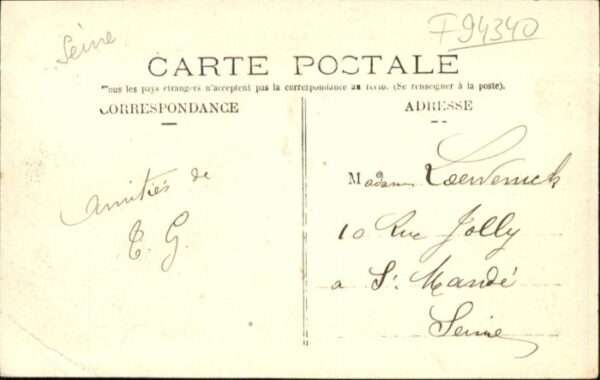 Seine
F94340
CARTE POSTALE
Tous les pays étrangers n'acceptent pas la correspondance au recto. (Se renseigner à la poste).
CORRESPONDANCE
ADRESSE
amitiés de
E. G.
Madame
10 Rue Jolly
a St Mandé
Seine